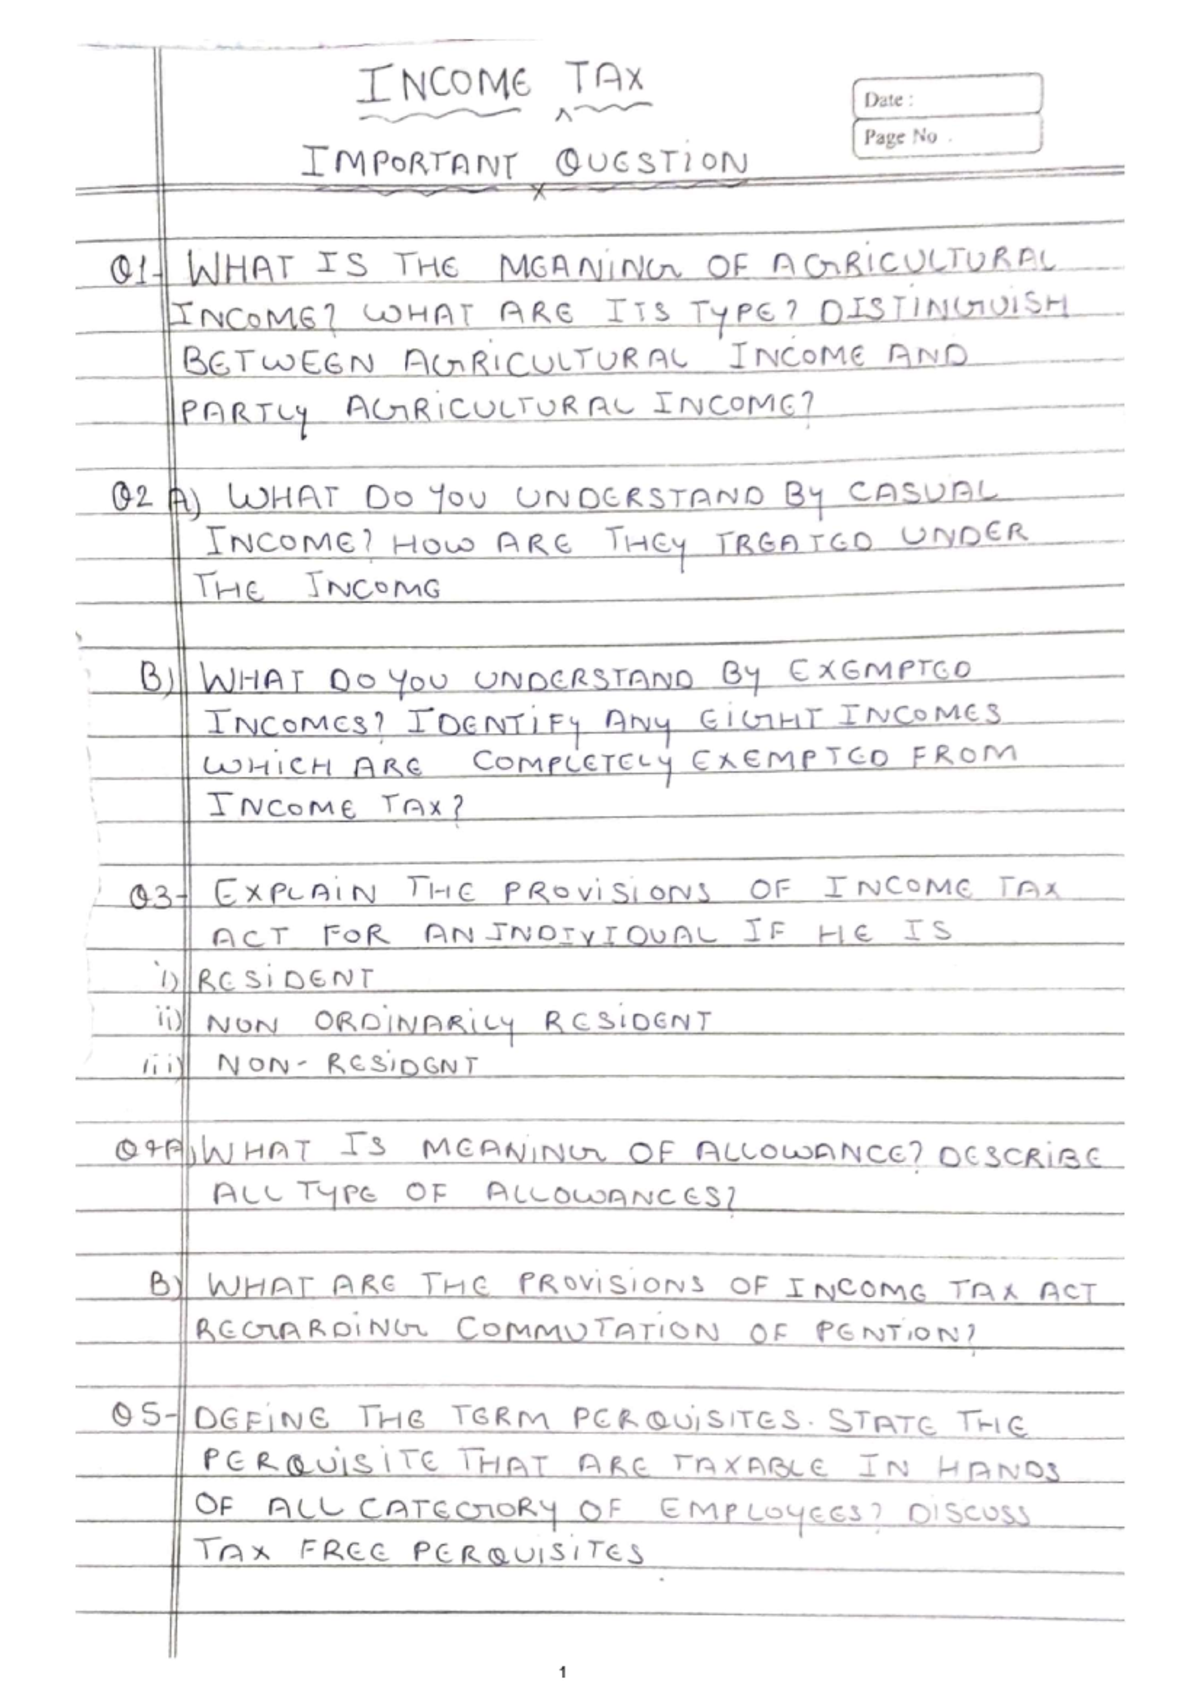 INCOME TAX
Date :
Page No .
IMPORTANT QUESTION
Q1- WHAT IS THE MEANING OF AGRICULTURAL
INCOME? WHAT ARE ITS TYPE? DISTINGUISH
BETWEEN AGRICULTURAL INCOME AND
PARTLY AGRICULTURAL INCOME?
Q2 A) WHAT DO YOU UNDERSTAND BY CASUAL
INCOME? HOW ARE THEY TREATED UNDER
THE INCOME
B) WHAT DO YOU UNDERSTAND BY EXEMPTED
INCOMES? IDENTIFY ANY EIGHT INCOMES
WHICH ARE COMPLETELY EXEMPTED FROM
INCOME TAX?
Q3- EXPLAIN THE PROVISIONS OF INCOME TAX
ACT FOR AN INDIVIDUAL IF HE IS
i) RESIDENT
ii) NON ORDINARILY RESIDENT
iii) NON-RESIDENT
Q4A) WHAT IS MEANING OF ALLOWANCE? DESCRIBE
ALL TYPE OF ALLOWANCES?
B) WHAT ARE THE PROVISIONS OF INCOME TAX ACT
REGARDING COMMUTATION OF PENTION?
Q5- DEFINE THE TERM PERQUISITES. STATE THE
PERQUISITE THAT ARE TAXABLE IN HANDS
OF ALL CATEGORY OF EMPLOYEES? DISCUSS
TAX FREE PERQUISITES
1